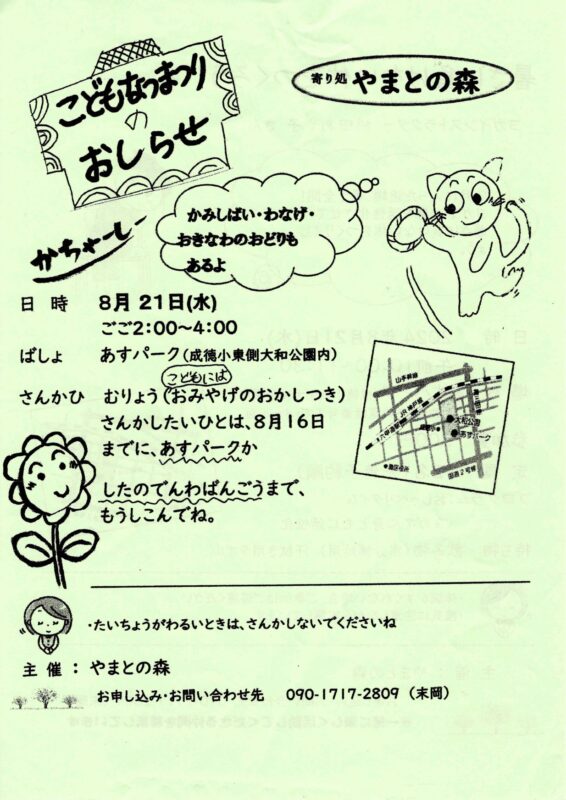 こどもなつまつり
の
おしらせ
寄り処 やまとの森
かみしばい・わなげ・
おきなわのおどりも
あるよ
かちゃーしー
日 時 8月 21日(水)
ごご2:00～4:00
ばしょ あすパーク(成徳小東側大和公園内)
こどもには
さんかひ むりょう(おみやげのおかしつき)
さんかしたいひとは、8月16日
までに、あすパークか
したのでんわばんごうまで、
もうしこんでね。
山手幹線
JR神戸線
大和公園
あすパーク
灘区役所
国道2号線
・たいちょうがわるいときは、さんかしないでくださいね
主 催 : やまとの森
お申し込み・お問い合わせ先 090-1717-2809 (末岡)